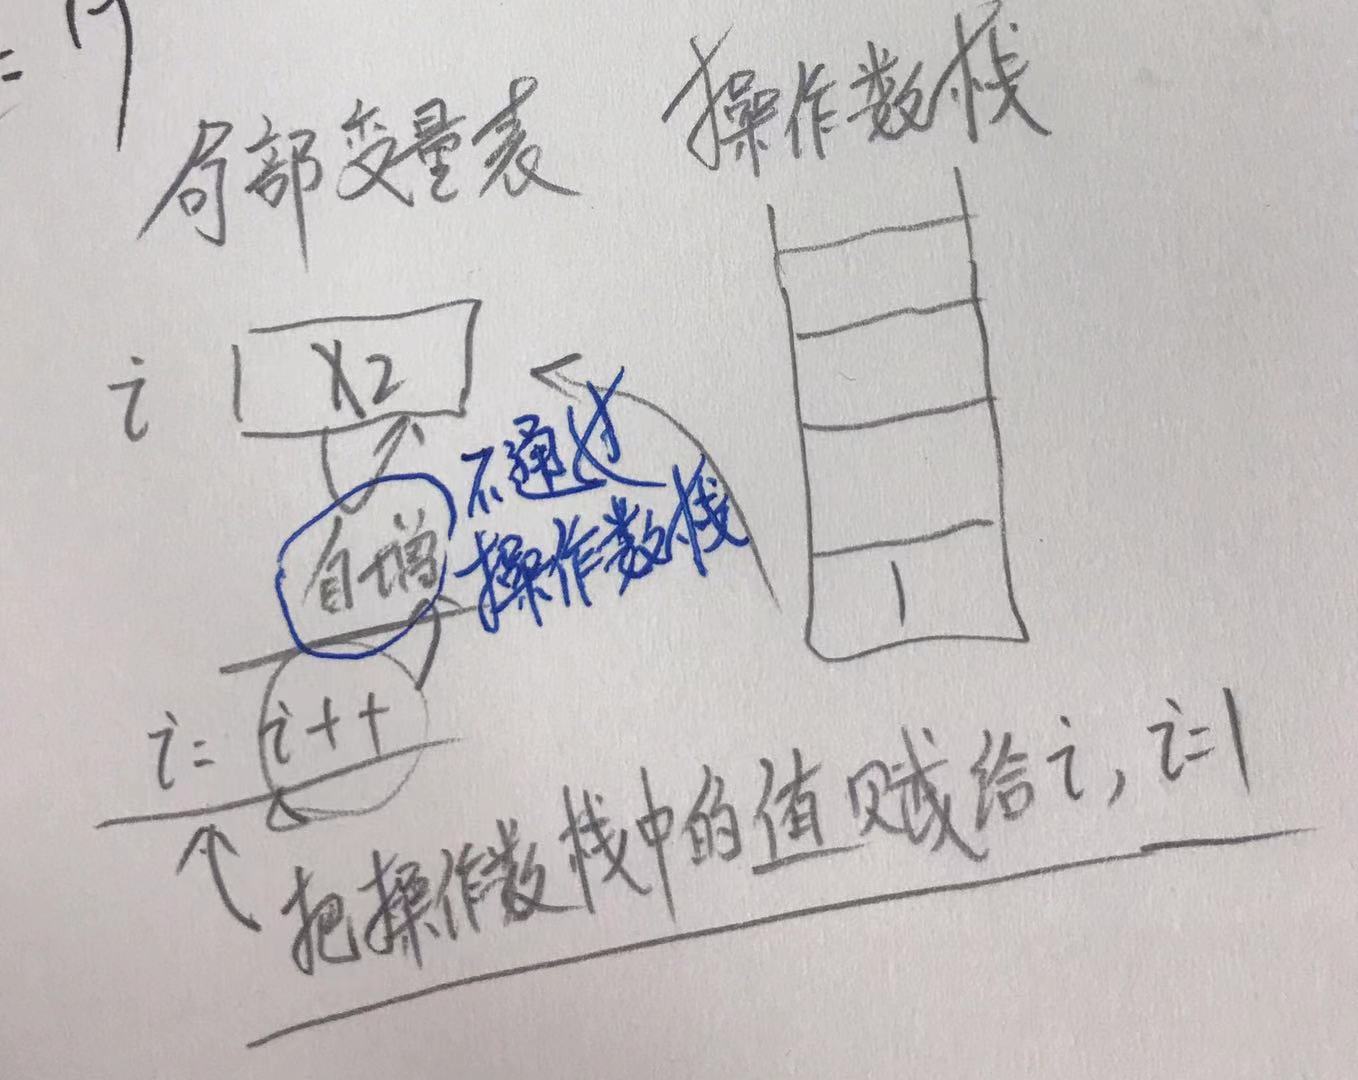 局部变量表 操作数栈
i 2
不通过
自增 操作数栈
1
i=i++
把操作数栈中的值赋给i,i=1